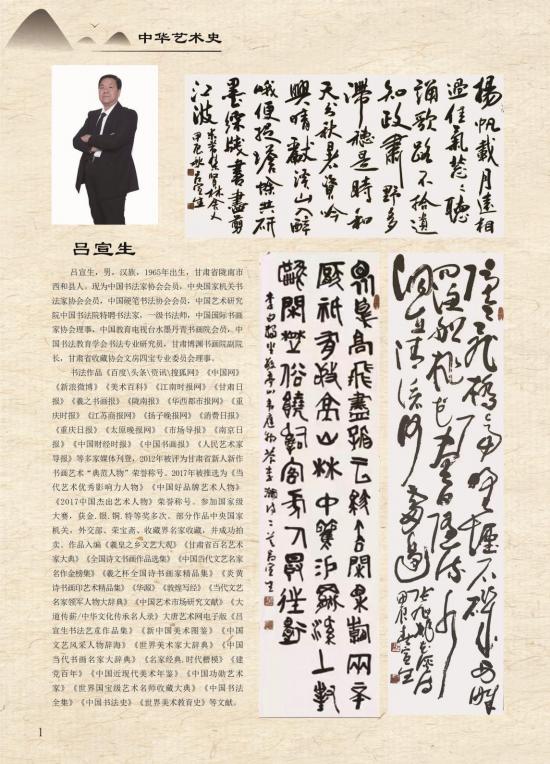 中华艺术史
楊帆載月遠相
過佳氣葱〻聽
誦歌路不拾遺
知政肅野多
滯穗是時和
天分秋暑資吟
興晴献溪山入醉
峨便捉蟾蜍共研
墨綵牋書盡剪
江波
甲辰秋吕宣生
吕宣生
吕宣生,男,汉族,1965年出生,甘肃省陇南市
西和县人。现为中国书法家协会会员,中央国家机关书
法家协会会员,中国硬笔书法协会会员,中国艺术研究
院中国书法院特聘书法家,一级书法师,中国国际书画
家协会理事,中国教育电视台水墨丹青书画院会员,中
国书法教育学会书法专业研究员,甘肃博渊书画院副院
长,甘肃省收藏协会文房四宝专业委员会理事。
书法作品《百度\头条\资讯\搜狐网》《中国网》
《新浪微博》《美术百科》《江南时报网》《甘肃日
报》《羲之书画报》《陇南报》《华西都市报网》《重
庆时报》《江苏商报网》《扬子晚报网》《消费日报》
《重庆日报》《太原晚报网》《市场导报》《南京日
报》《中国财经时报》《中国书画报》《人民艺术家
导报》等多家媒体刊登,2012年被评为甘肃省新人新作
书画艺术“典范人物”荣誉称号。2017年被推选为《当
代艺术优秀影响力人物》《中国好品牌艺术人物》
《2017中国杰出艺术人物》荣誉称号。参加国家级
大赛,获金.银.铜.特等奖多次。部分作品中央国家
机关,外交部、荣宝斋、收藏界名家收藏,并成功拍
卖。作品入编《羲皇之乡文艺大观》《甘肃省百名艺术
家大典》《全国诗文书画作品选集》《中国当代文艺名家
名作金榜集》《羲之杯全国诗书画家精品集》《炎黄
诗书画印艺术精品集》《华源》《敦煌写经》《当代文艺
名家领军人物大辞典》《中国艺术市场研究文献》《大
道传薪/中华文化传承名人录》大唐艺术网电子版《吕
宣生书法艺术作品集》《新中国美术图鉴》《中国
文艺风采人物辞海》《世界美术家大辞典》《中国
当代书画名家大辞典》《名家经典.时代楷模》《建
党百年》《中国近现代美术年鉴》《中国功勋艺术
家》《世界国宝级艺术名师收藏大典》《中国书法
全集》《中国书法史》《世界美术教育史》等文献。
隱〻飛橋隔野煙石磯西畔
問漁船桃花盡日隨流水
洞在清溪何處邊
1